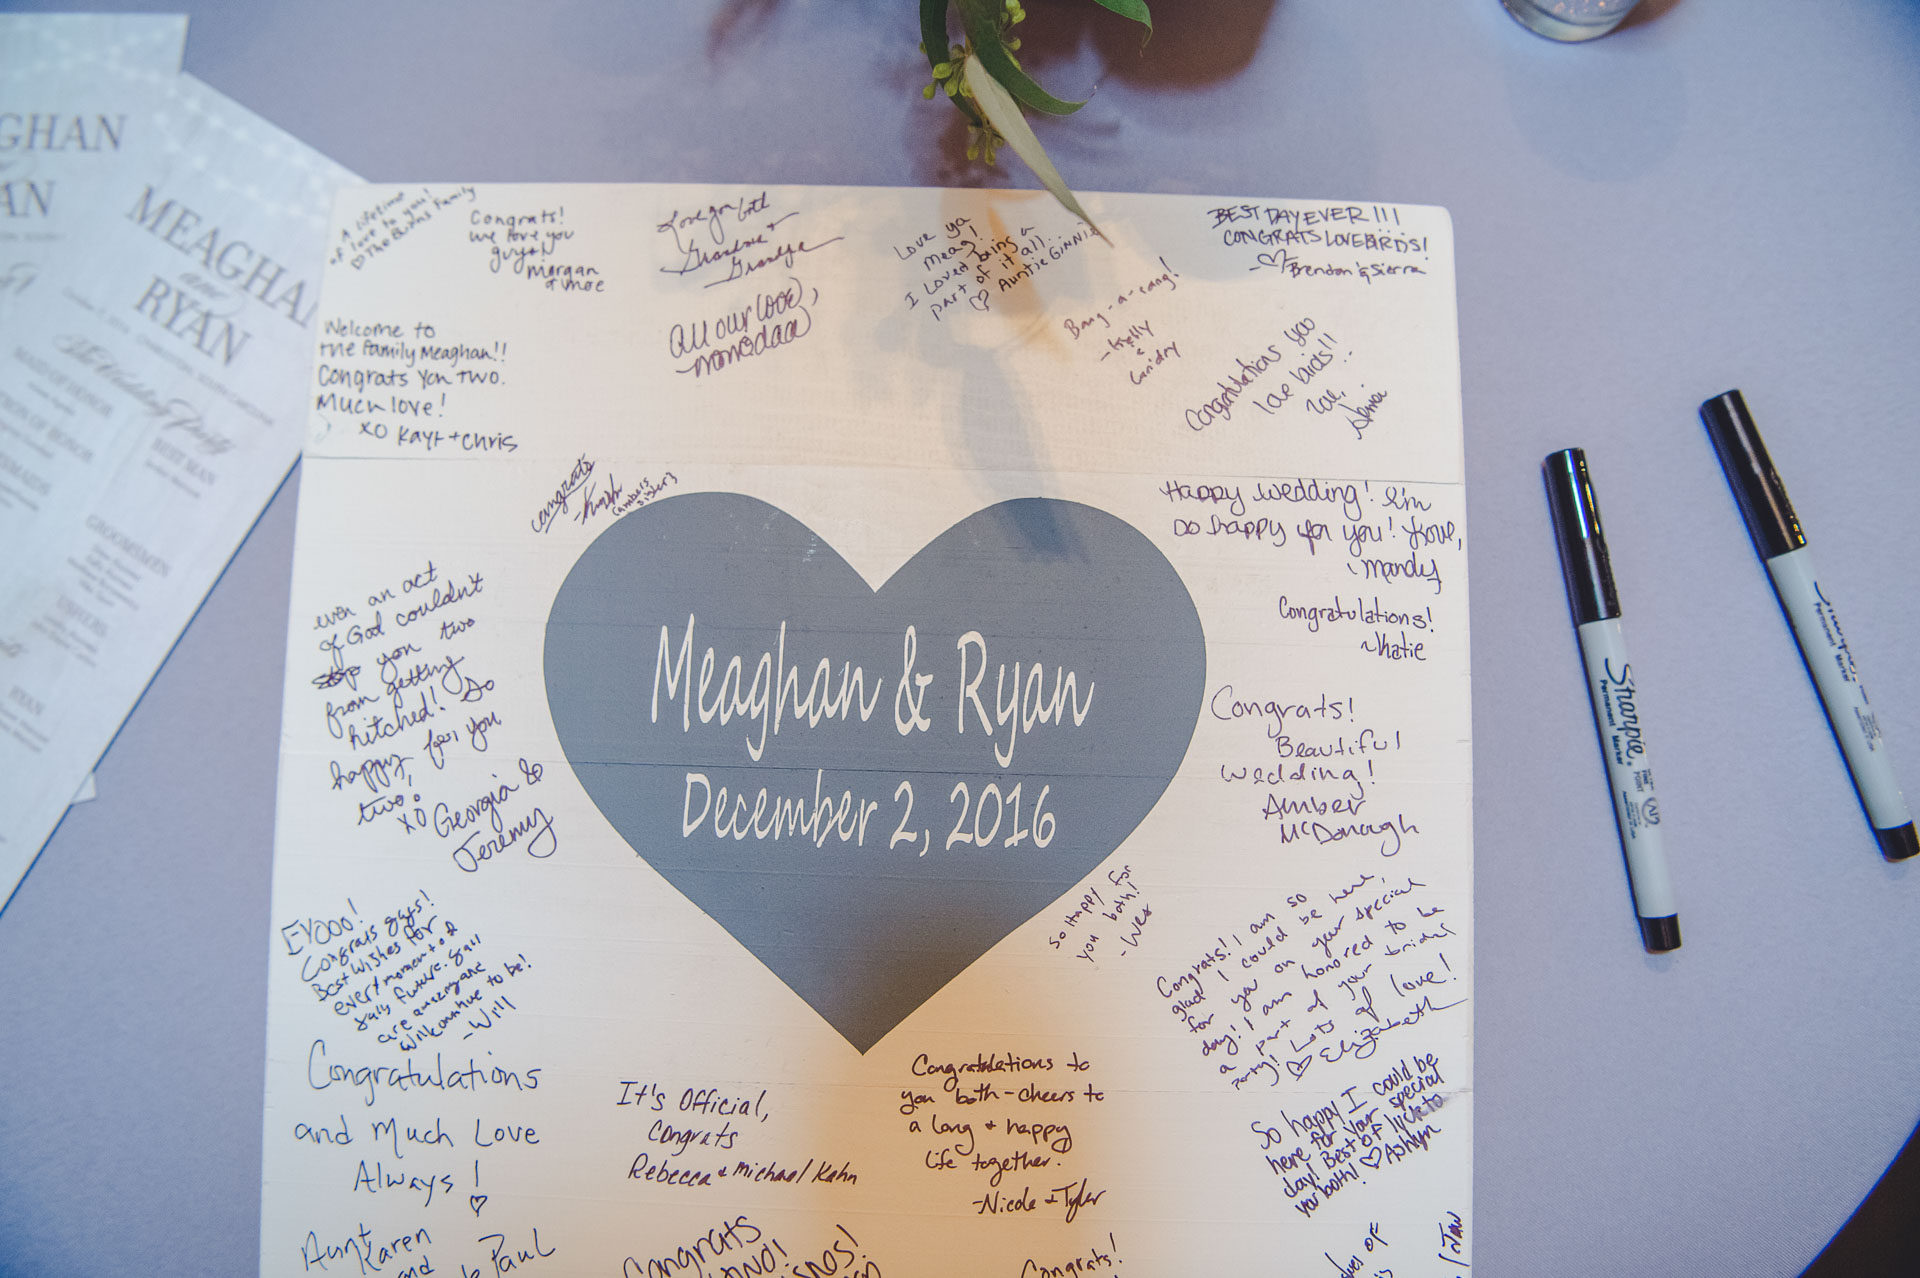 MEAGHAN
and
RYAN
The Wedding Party
MAID OF HONOR
BEST MAN
GROOMSMEN
USHERS
RYAN
A lifetime
of love to you!
♡ The Burns Family
Congrats!
we love you
guys!
morgan
& moe
Love you both
Grandma +
Grandpa
All our love,
Love ya
Meag!
I loved being a
part of it all...
♡ Auntie Ginnie
BEST DAY EVER!!!
CONGRATS LOVEBIRDS!
-♡ Brendon & Sierra
Welcome to
the family Meaghan!!
Congrats you two.
Much love!
XO Kayt + Chris
Bang-a-rang!
- Kelly
&
Landry
Congratulations you
love birds!!
Love,
congrats
Happy wedding! I'm
so happy for you! Love,
~Mandy
Congratulations!
~Katie
even an act
of God couldn't
stop you two
from getting
hitched! So
happy for you
two!
XO Georgia &
Jeremy
Meaghan & Ryan
December 2, 2016
Congrats!
Beautiful
wedding!
Amber
McDonagh
So Happy for
you both!
- Wes
EYOOO!
Congrats guys!
Best wishes for
every moment of
yalls future. Yall
are amazing and
will continue to be!
-Will
Congrats! I am so
glad I could be here,
for you on your special
day! I am honored to be
a part of your bridal
party! Lots of love!
♡ Elizabeth
Congratulations
and Much Love
Always!
♡
Aunt
Karen
and
Paul
It's Official,
Congrats
Rebecca + Michael Kahn
Congratulations to
you both - cheers to
a long + happy
life together.
-Nicole + Tyler
So happy I could be
here for your special
day! Best of luck to
you both! ♡ Ashlyn
Congrats
Congrats!
of
Sharpie
Permanent Marker
Permanent Marker